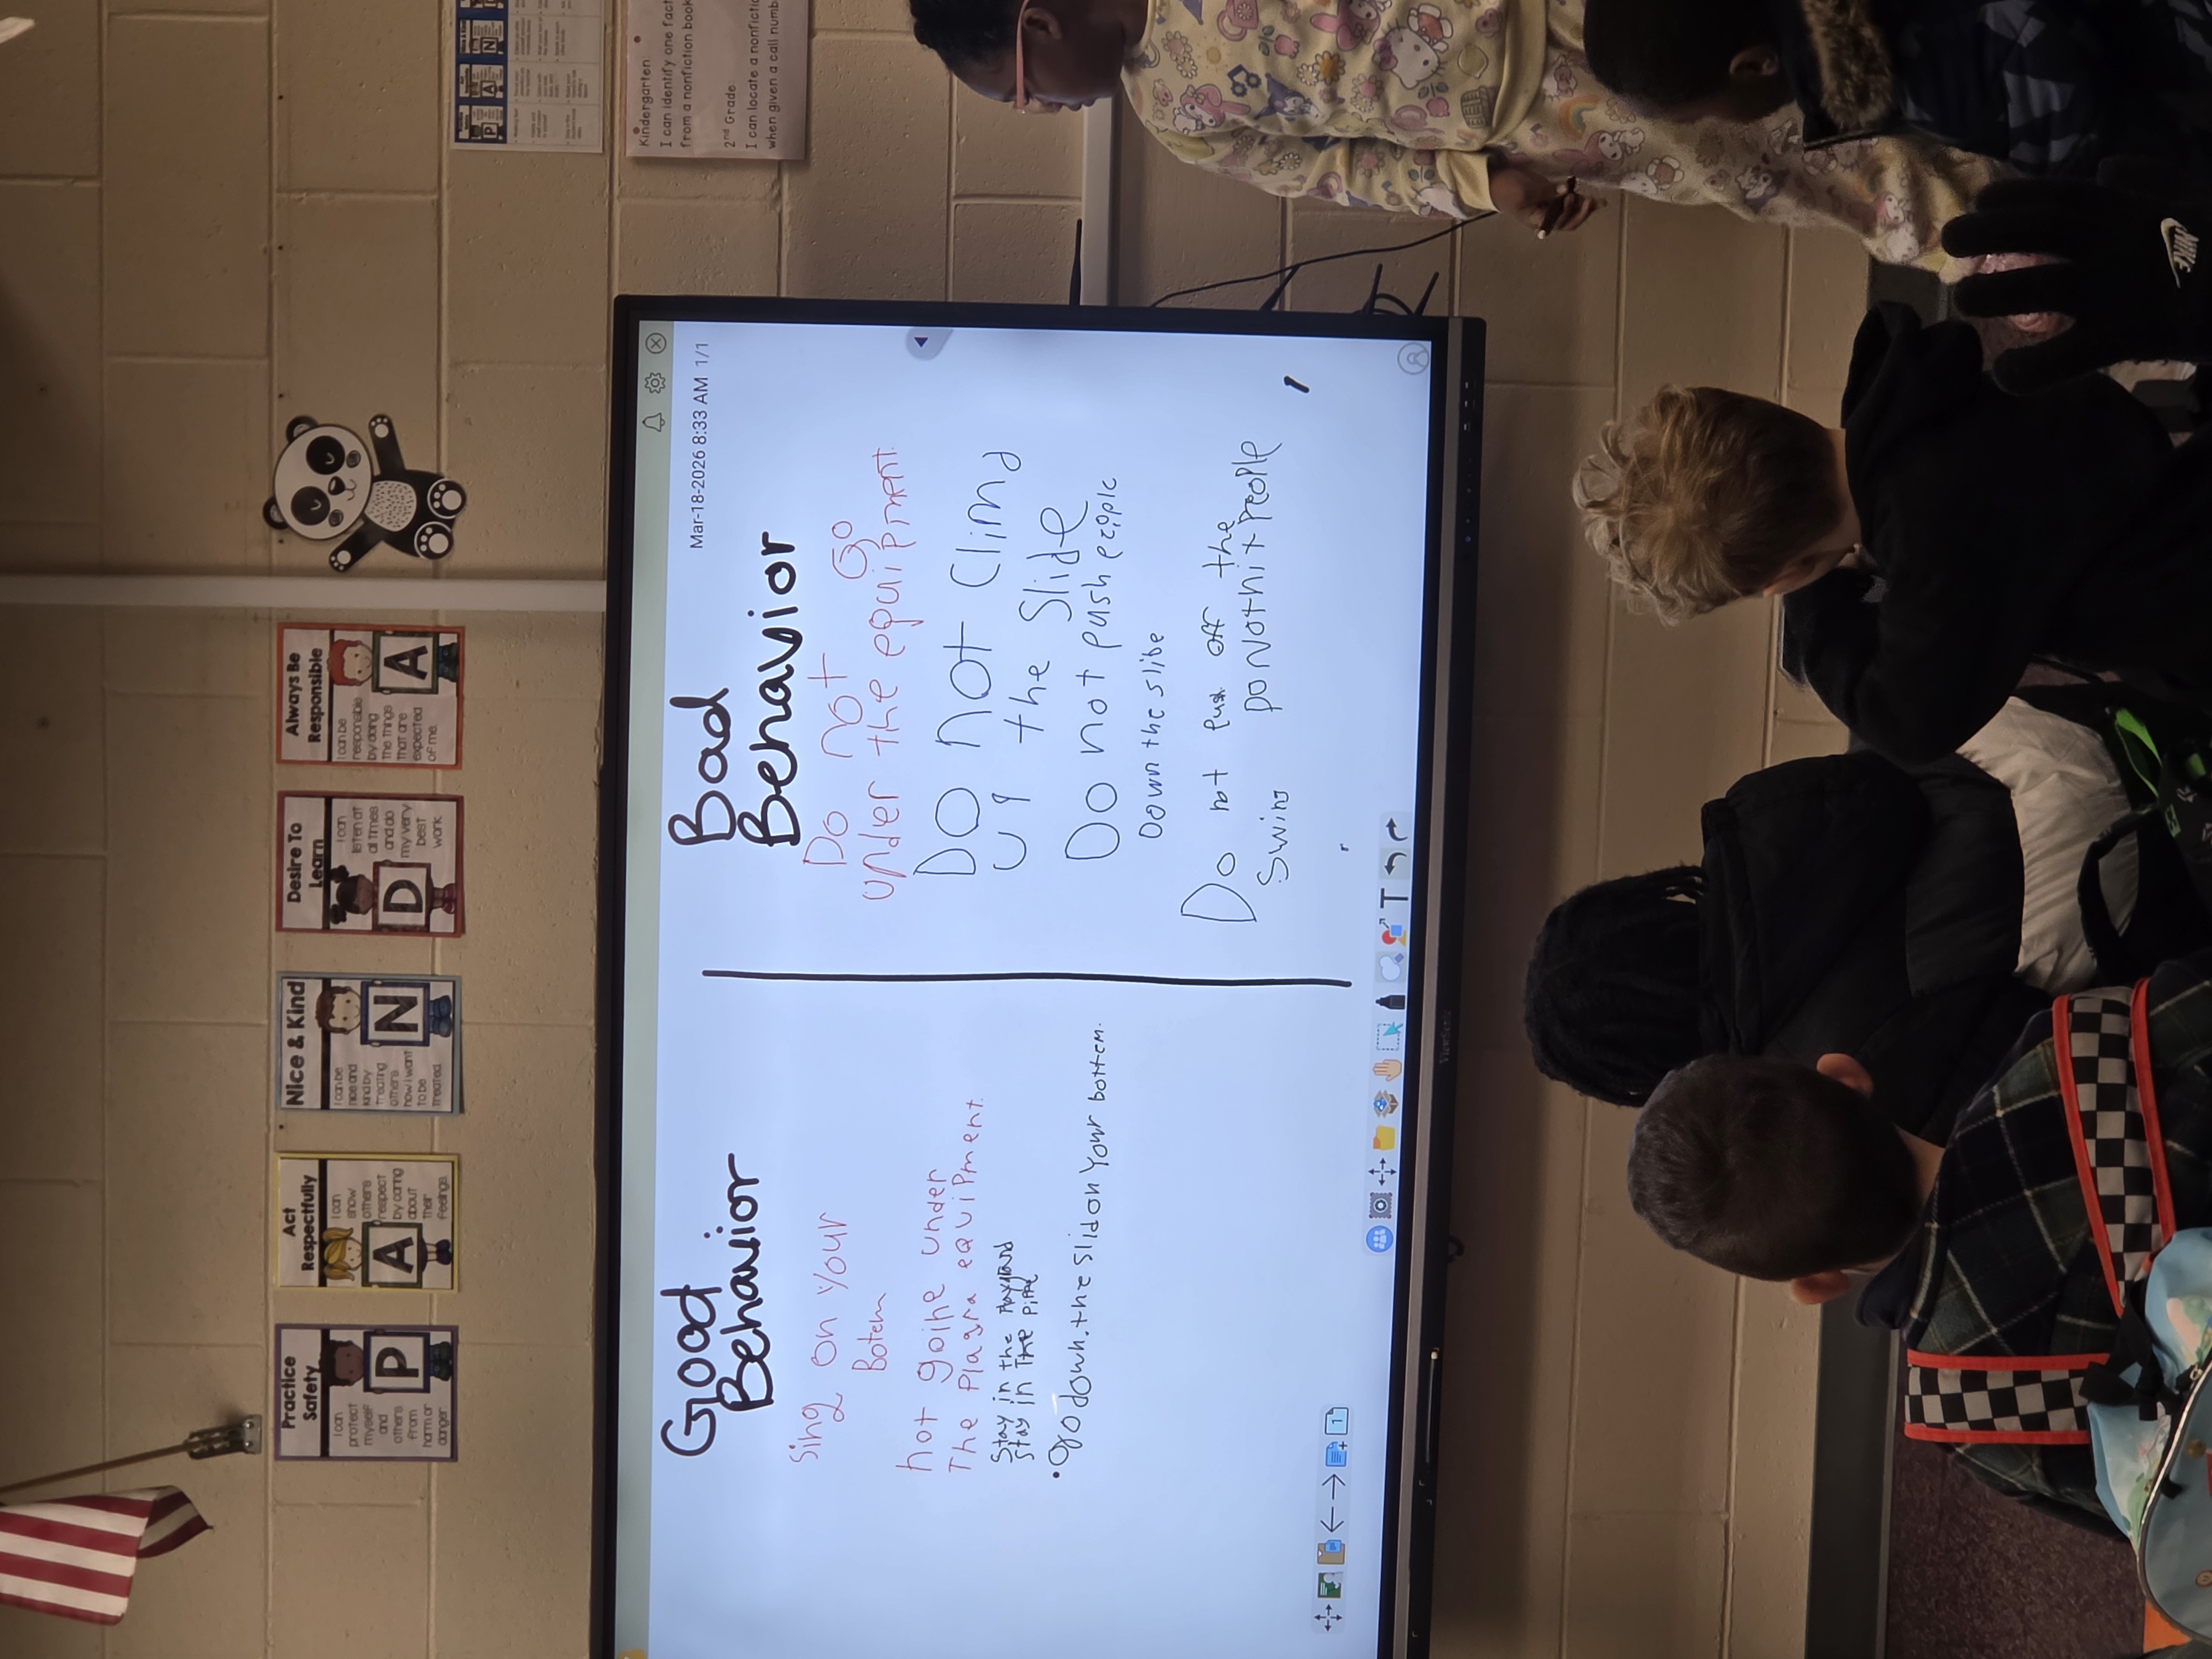 Practice
Safety
I can
protect
myself
and
others
from
harm or
danger
P
Act
Respectfully
I can
show
others
respect
by caring
about
their
feelings.
A
Nice & Kind
I can be
nice and
kind by
treating
others
how I want
to be
treated.
N
Desire To
Learn
I can
listen at
all times
and do
my very
best
work
D
Always Be
Responsible
I can be
responsible
by doing
the things
that are
expected
of me.
A
P A N
Kindergarten:
I can identify one fact
from a nonfiction book
2nd Grade:
I can locate a nonfictio
when given a call numb
Mar-18-2026 8:33 AM 1/1
Good
Behavior
Sing on your
Botem
not goine under
The Plagra equipment.
Stay in the Playground
Stay in The
•go down.the slid on Your bottem.
Bad
Behavior
Do not Go
under the equipment.
Do not Climb
up the Slide
Do not push people
Down the slibe
Do not Push off the
Swing
Do Not hit people
T
1
ViewSonic
NIKE